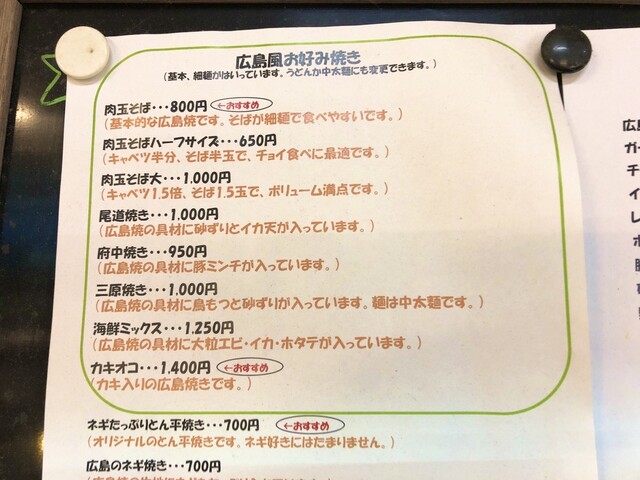 広島風お好み焼き
(基本、細麺がはいっています。うどんか中太麺にも変更できます。)
肉玉そば・・・800円 ←おすすめ
(基本的な広島焼です。そばが細麺で食べやすいです。)
肉玉そばハーフサイズ・・・650円
(キャベツ半分、そば半玉で、チョイ食べに最適です。)
肉玉そば大・・・1,000円
(キャベツ1.5倍、そば1.5玉で、ボリューム満点です。)
尾道焼き・・・1,000円
(広島焼の具材に砂ずりとイカ天が入っています。)
府中焼き・・・950円
(広島焼の具材に豚ミンチが入っています。)
三原焼き・・・1,000円
(広島焼の具材に鳥もつと砂ずりが入っています。麺は中太麺です。)
海鮮ミックス・・・1,250円
(広島焼の具材に大粒エビ・イカ・ホタテが入っています。)
カキオコ・・・1,400円 ←おすすめ
(カキ入りの広島焼きです。)
ネギたっぷりとん平焼き・・・700円 ←おすすめ
(オリジナルのとん平焼きです。ネギ好きにはたまりません。)
広島のネギ焼き・・・700円
広島
ガー
チ
イ
レ